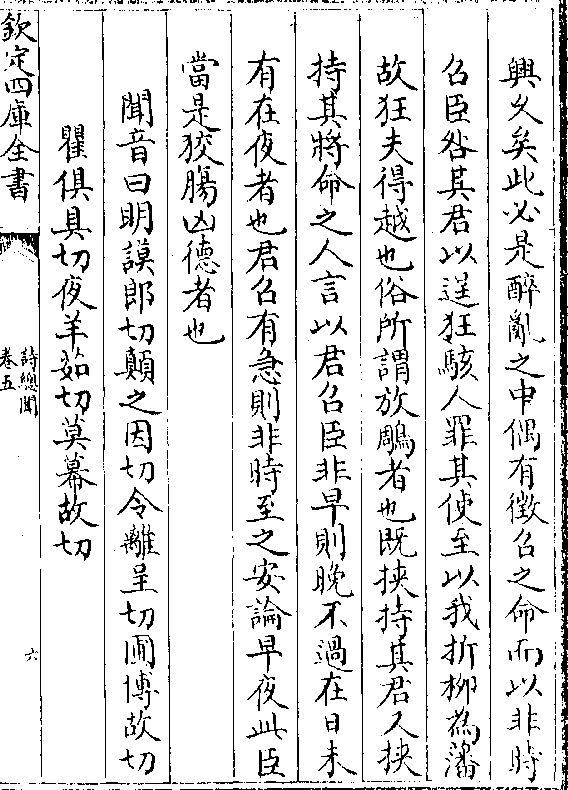 興乆矣此必是醉亂之中偶有徴召之命而以非時
召臣咎其君以逞狂駭人罪其使至以我折栁為藩
故狂夫得越也俗所謂放鵰者也既挟持其君又挟
持其將命之人言以君召臣非早則晚不過在日未
有在夜者也君召有急則非時至之安論早夜此臣
當是狡腸凶德者也
聞音曰明謨郎切顛之因切令離呈切圃博故切
瞿俱具切夜羊茹切莫幕故切
欽定四庫全書
詩總聞
卷五
六